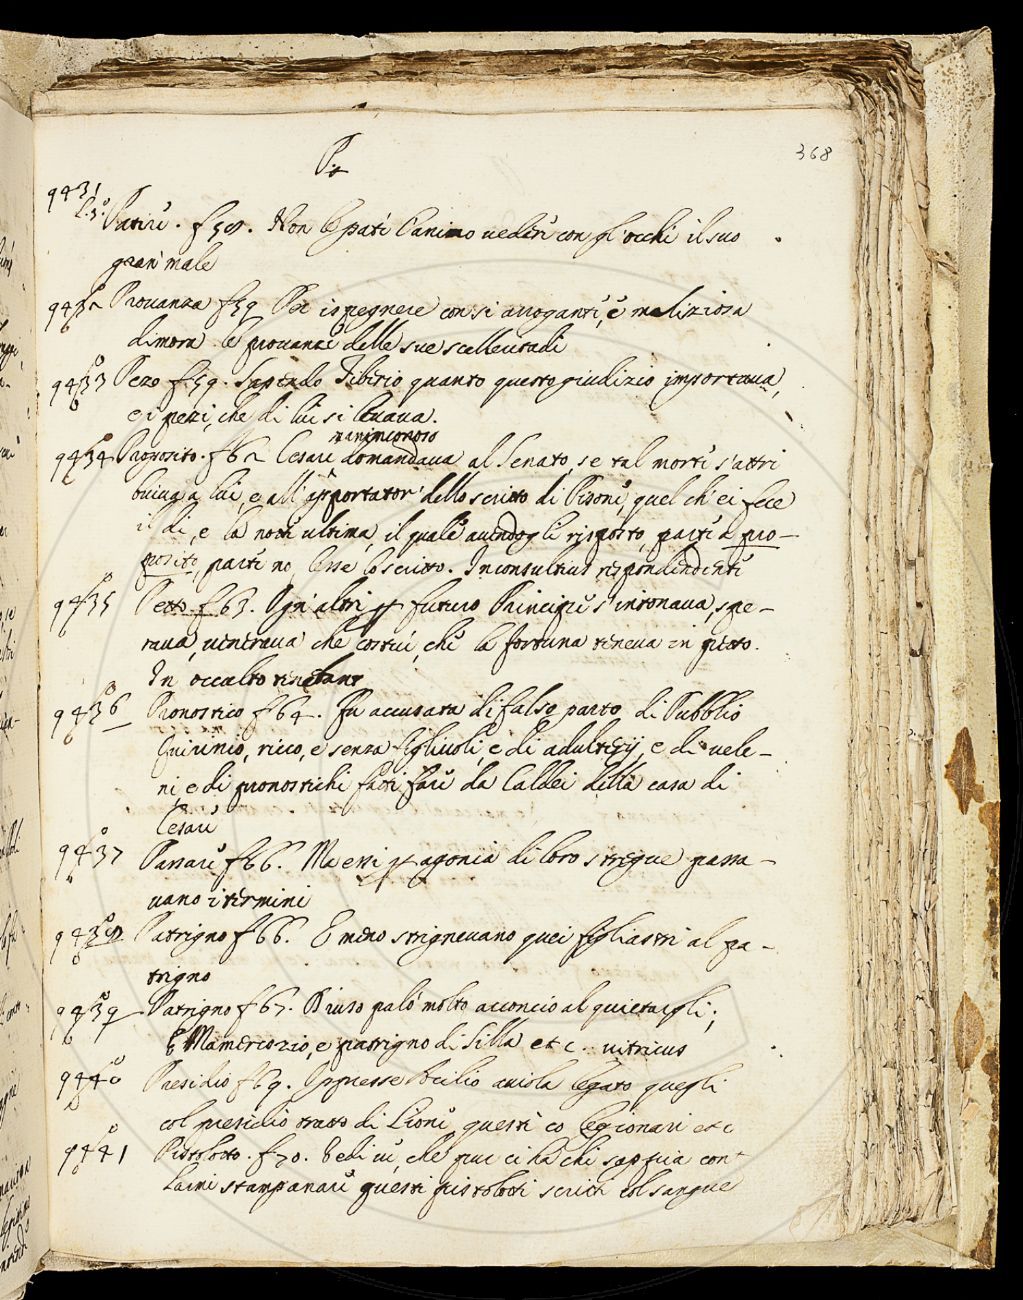 368
P.
9431 L. 3.° Patire. f 58. Non le patì l'animo vedere con gl'occhi il suo
gran male
9432 Provanza f 59 Per ispegnere con sì arroganti, e maliziosa
dimora le provanze delle sue scelleratadi
9433 Pezo f 59. Sapendo Tiberio quanto questo giudizio importava,
e i pezi, che di lui si levava.
maninconoso
9434 Proposito. f 62 Cesare domandava al Senato, se tal morte s'attri
buiva a lui, e all' apportator' dello scritto di Pisone, quel ch'ei fece
il dì, e la notte ultima, il quale avendogli risposto, parte a pro-
posito, parte no, lesse lo scritto. Inconsultius respondendenti
9435 Petto. f 63. Ogn'altri p futuro Principe s'intonava, spe-
rava, venerava che costui, che la fortuna teneva in petto.
In occulto tenebant
9436 Pronostico f 64. Fu accusata di falso parto di Pubblio
Quirinio, ricco, e senza figliuoli, e di adulterij, e di vele-
ni e di pronostichi fatti fare da Caldei della casa di
Cesare
9437 Passare f 66. Ma essi p agonia di loro stregue passa-
vano i termini
9438 Patrigno f 66. E meno strignevano quei figliastri al pa-
trigno
9439 Patrigno f 67. Druso parlò molto acconcio al quietargli;
E Mamerco zio, e patrigno di Silla etc. vitricus
9440 Presidio f 69. Oppresse Acilio aviola legato quegli
col presidio tratto di Lione, questi co legionari etc
9441 Pistolotto. f 70. Vedi ve, che pur ci ha chi sappia con
l'armi stampanare questi pistolotti scritti col sangue